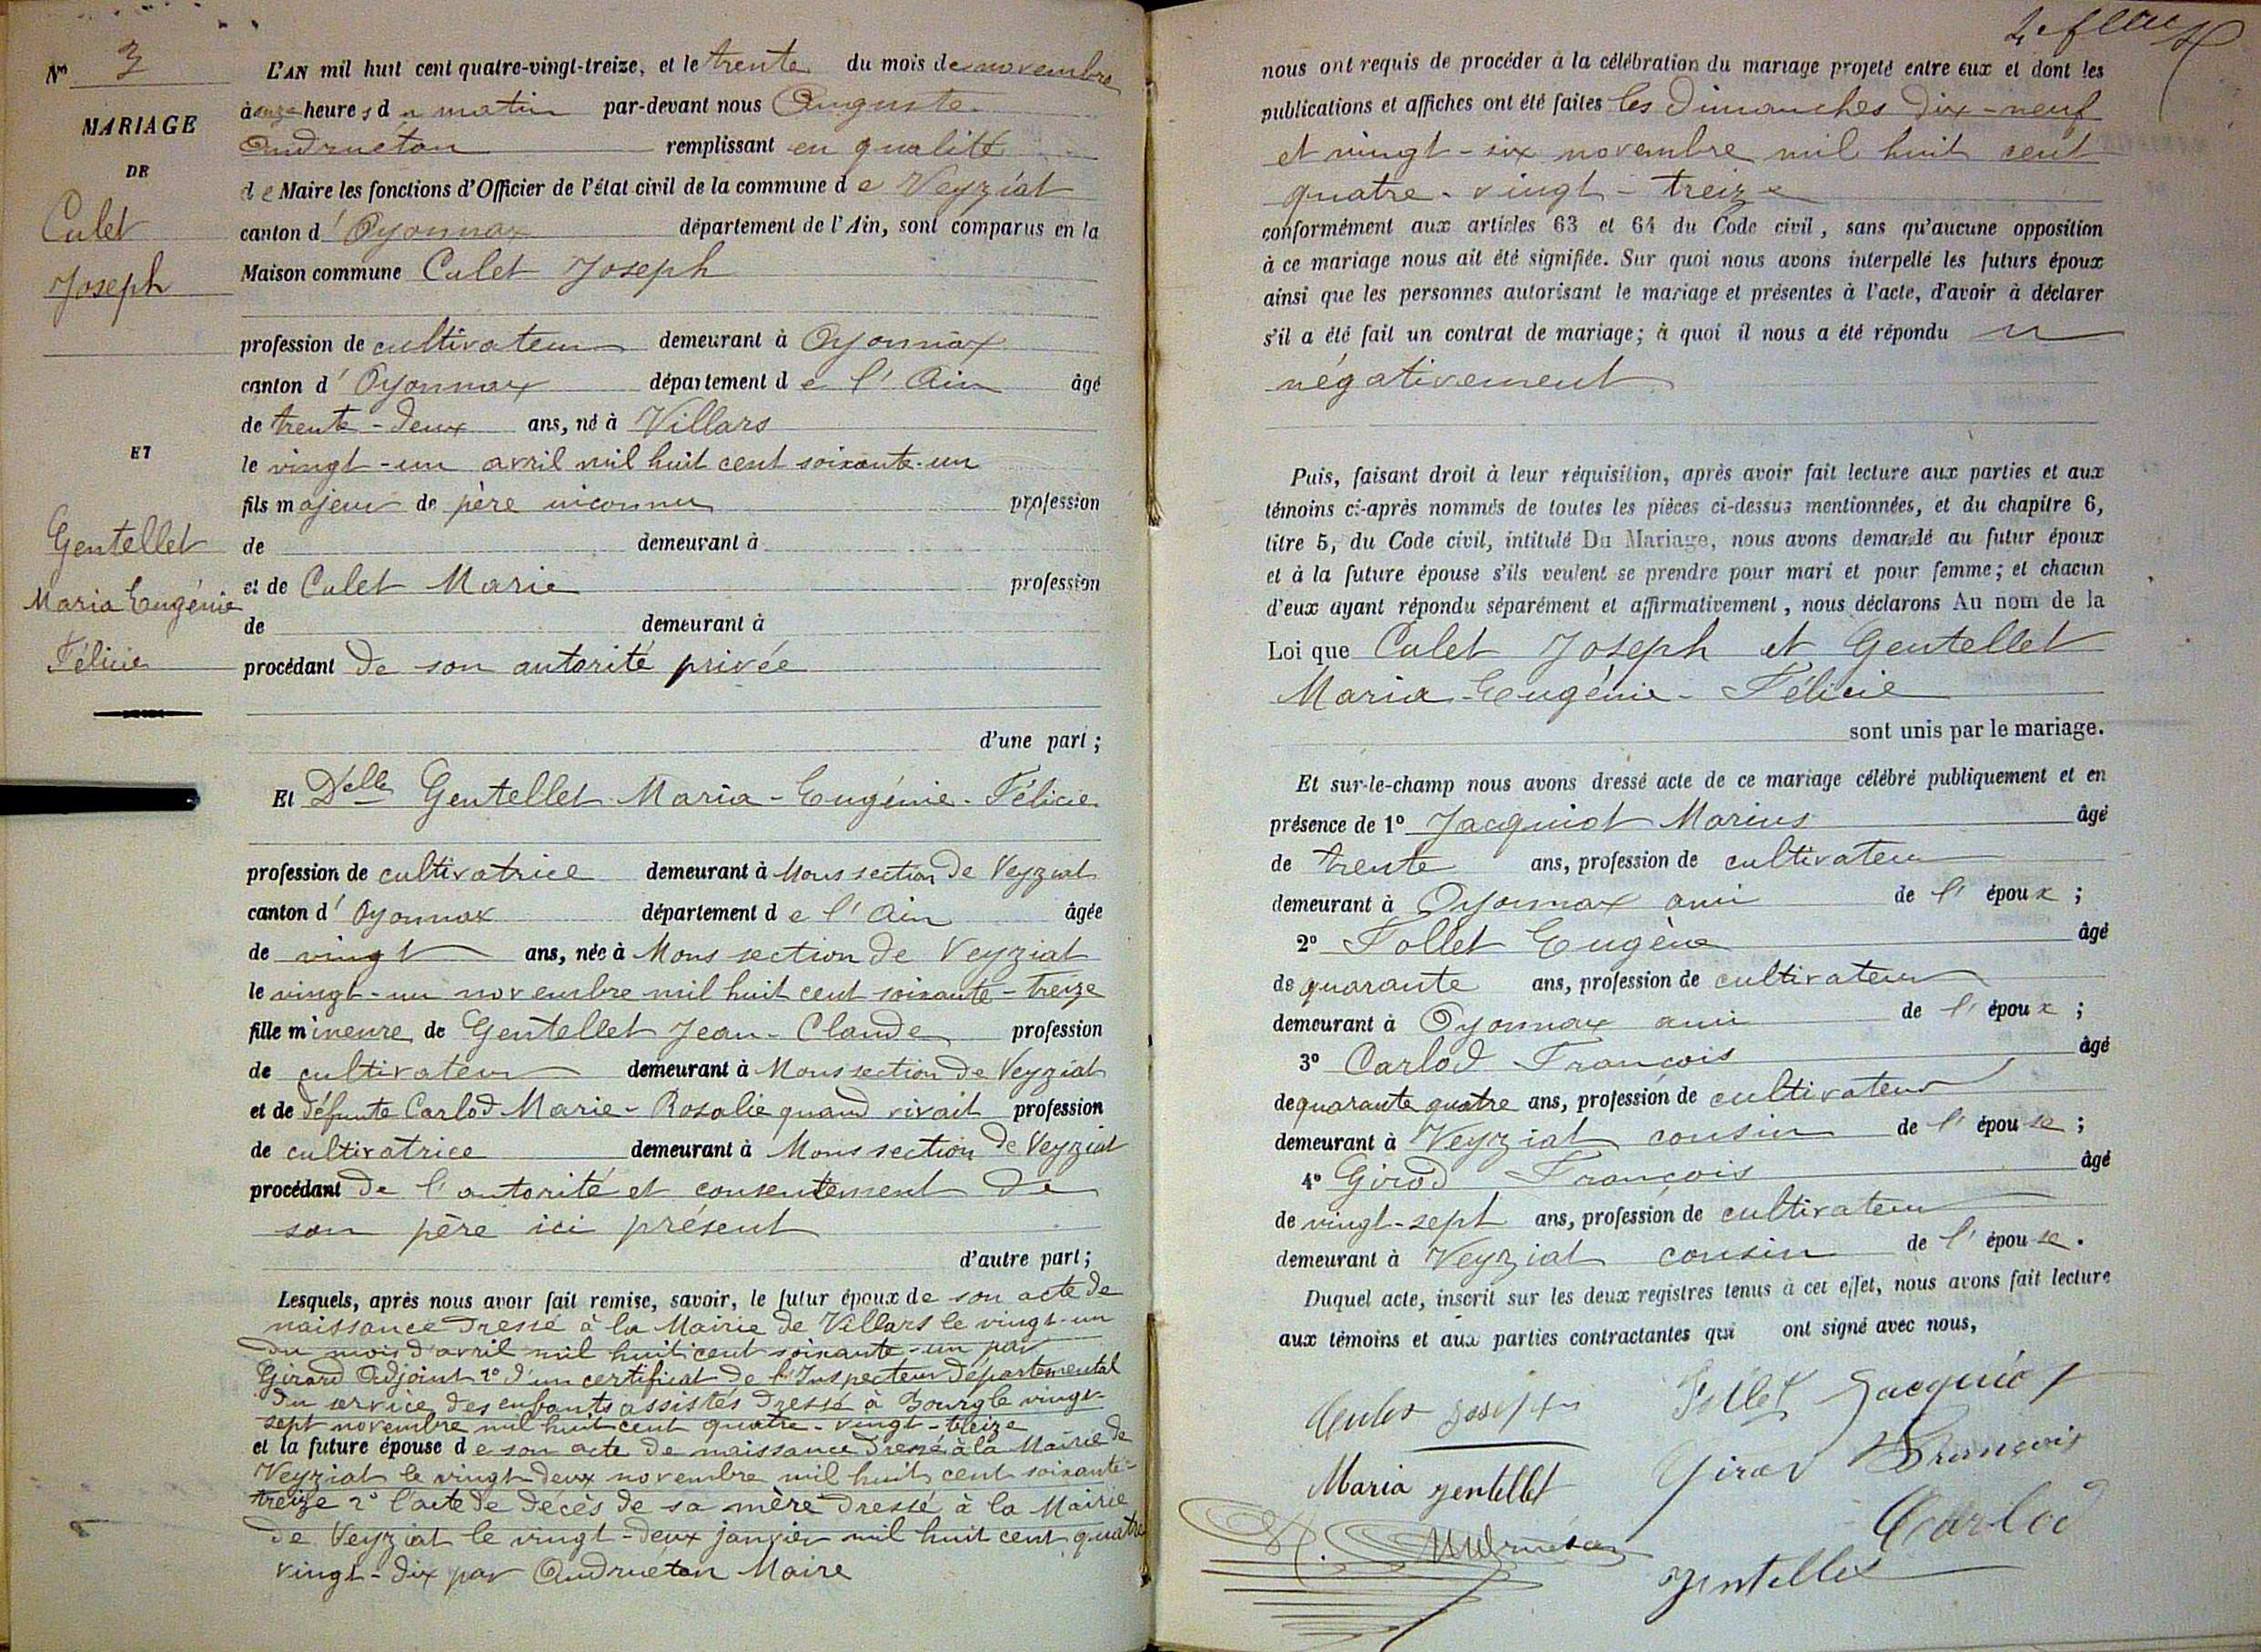 Nº 3
MARIAGE
DE
Culet
Joseph
ET
Gentellet
Maria Eugénie
Félicie
L'AN mil huit cent quatre-vingt-treize, et le trente du mois de novembre
à onze heures du matin par-devant nous Auguste
Andruétan remplissant en qualité
de Maire les fonctions d'Officier de l'état civil de la commune de Veyziat
canton d'Oyonnax département de l'Ain, sont comparus en la
Maison commune Culet Joseph
profession de cultivateur demeurant à Oyonnax
canton d'Oyonnax département de l'Ain âgé
de trente-deux ans, né à Villars
le vingt-un avril mil huit cent soixante-un
fils majeur de père inconnu profession
de demeurant à
et de Culet Marie profession
de demeurant à
procédant de son autorité privée
d'une part;
Et Delle Gentellet Maria-Eugénie-Félicie
profession de cultivatrice demeurant à Mons section de Veyziat
canton d'Oyonnax département de l'Ain âgée
de vingt ans, née à Mons section de Veyziat
le vingt-un novembre mil huit cent soixante-treize
fille mineure de Gentellet Jean-Claude profession
de cultivateur demeurant à Mons section de Veyziat
et de défunte Carlod Marie-Rosalie quand vivait profession
de cultivatrice demeurant à Mons section de Veyziat
procédant de l'autorité et consentement de
son père ici présent
d'autre part;
Lesquels, après nous avoir fait remise, savoir, le futur époux de son acte de
naissance dressé à la Mairie de Villars le vingt-un
du mois d'avril mil huit cent soixante-un par
Girard Adjoint 2º d'un certificat de l'Inspecteur départemental
du service des enfants assistés dressé à Bourg le vingt-
sept novembre mil huit cent quatre-vingt-treize
et la future épouse de son acte de naissance dressé à la Mairie de
Veyziat le vingt deux novembre mil huit cent soixante-
treize 2º l'acte de décès de sa mère dressé à la Mairie
de Veyziat le vingt-deux janvier mil huit cent quatre
vingt-dix par Andruétan Maire
nous ont requis de procéder à la célébration du mariage projeté entre eux et dont les
publications et affiches ont été faites les dimanches dix-neuf
et vingt-six novembre mil huit cent
quatre-vingt-treize
conformément aux articles 63 et 64 du Code civil, sans qu'aucune opposition
à ce mariage nous ait été signifiée. Sur quoi nous avons interpellé les futurs époux
ainsi que les personnes autorisant le mariage et présentes à l'acte, d'avoir à déclarer
s'il a été fait un contrat de mariage; à quoi il nous a été répondu
négativement
Puis, faisant droit à leur réquisition, après avoir fait lecture aux parties et aux
témoins ci-après nommés de toutes les pièces ci-dessus mentionnées, et du chapitre 6,
titre 5, du Code civil, intitulé Du Mariage, nous avons demandé au futur époux
et à la future épouse s'ils veulent se prendre pour mari et pour femme; et chacun
d'eux ayant répondu séparément et affirmativement, nous déclarons Au nom de la
Loi que Culet Joseph et Gentellet
Maria-Eugénie-Félicie
sont unis par le mariage.
Et sur-le-champ nous avons dressé acte de ce mariage célébré publiquement et en
présence de 1º Jacquiot Marius âgé
de trente ans, profession de cultivateur
demeurant à Oyonnax ami de l'époux;
2º Follet Eugène âgé
de quarante ans, profession de cultivateur
demeurant à Oyonnax ami de l'époux;
3º Carlod François âgé
de quarante quatre ans, profession de cultivateur
demeurant à Veyziat cousin de l'épouse;
4º Girod François âgé
de vingt-sept ans, profession de cultivateur
demeurant à Veyziat cousin de l'épouse.
Duquel acte, inscrit sur les deux registres tenus à cet effet, nous avons fait lecture
aux témoins et aux parties contractantes qui ont signé avec nous,
Culet Joseph Follet Jacquiot
Maria gentellet Girod François
Andruétan Carlod
gentellet